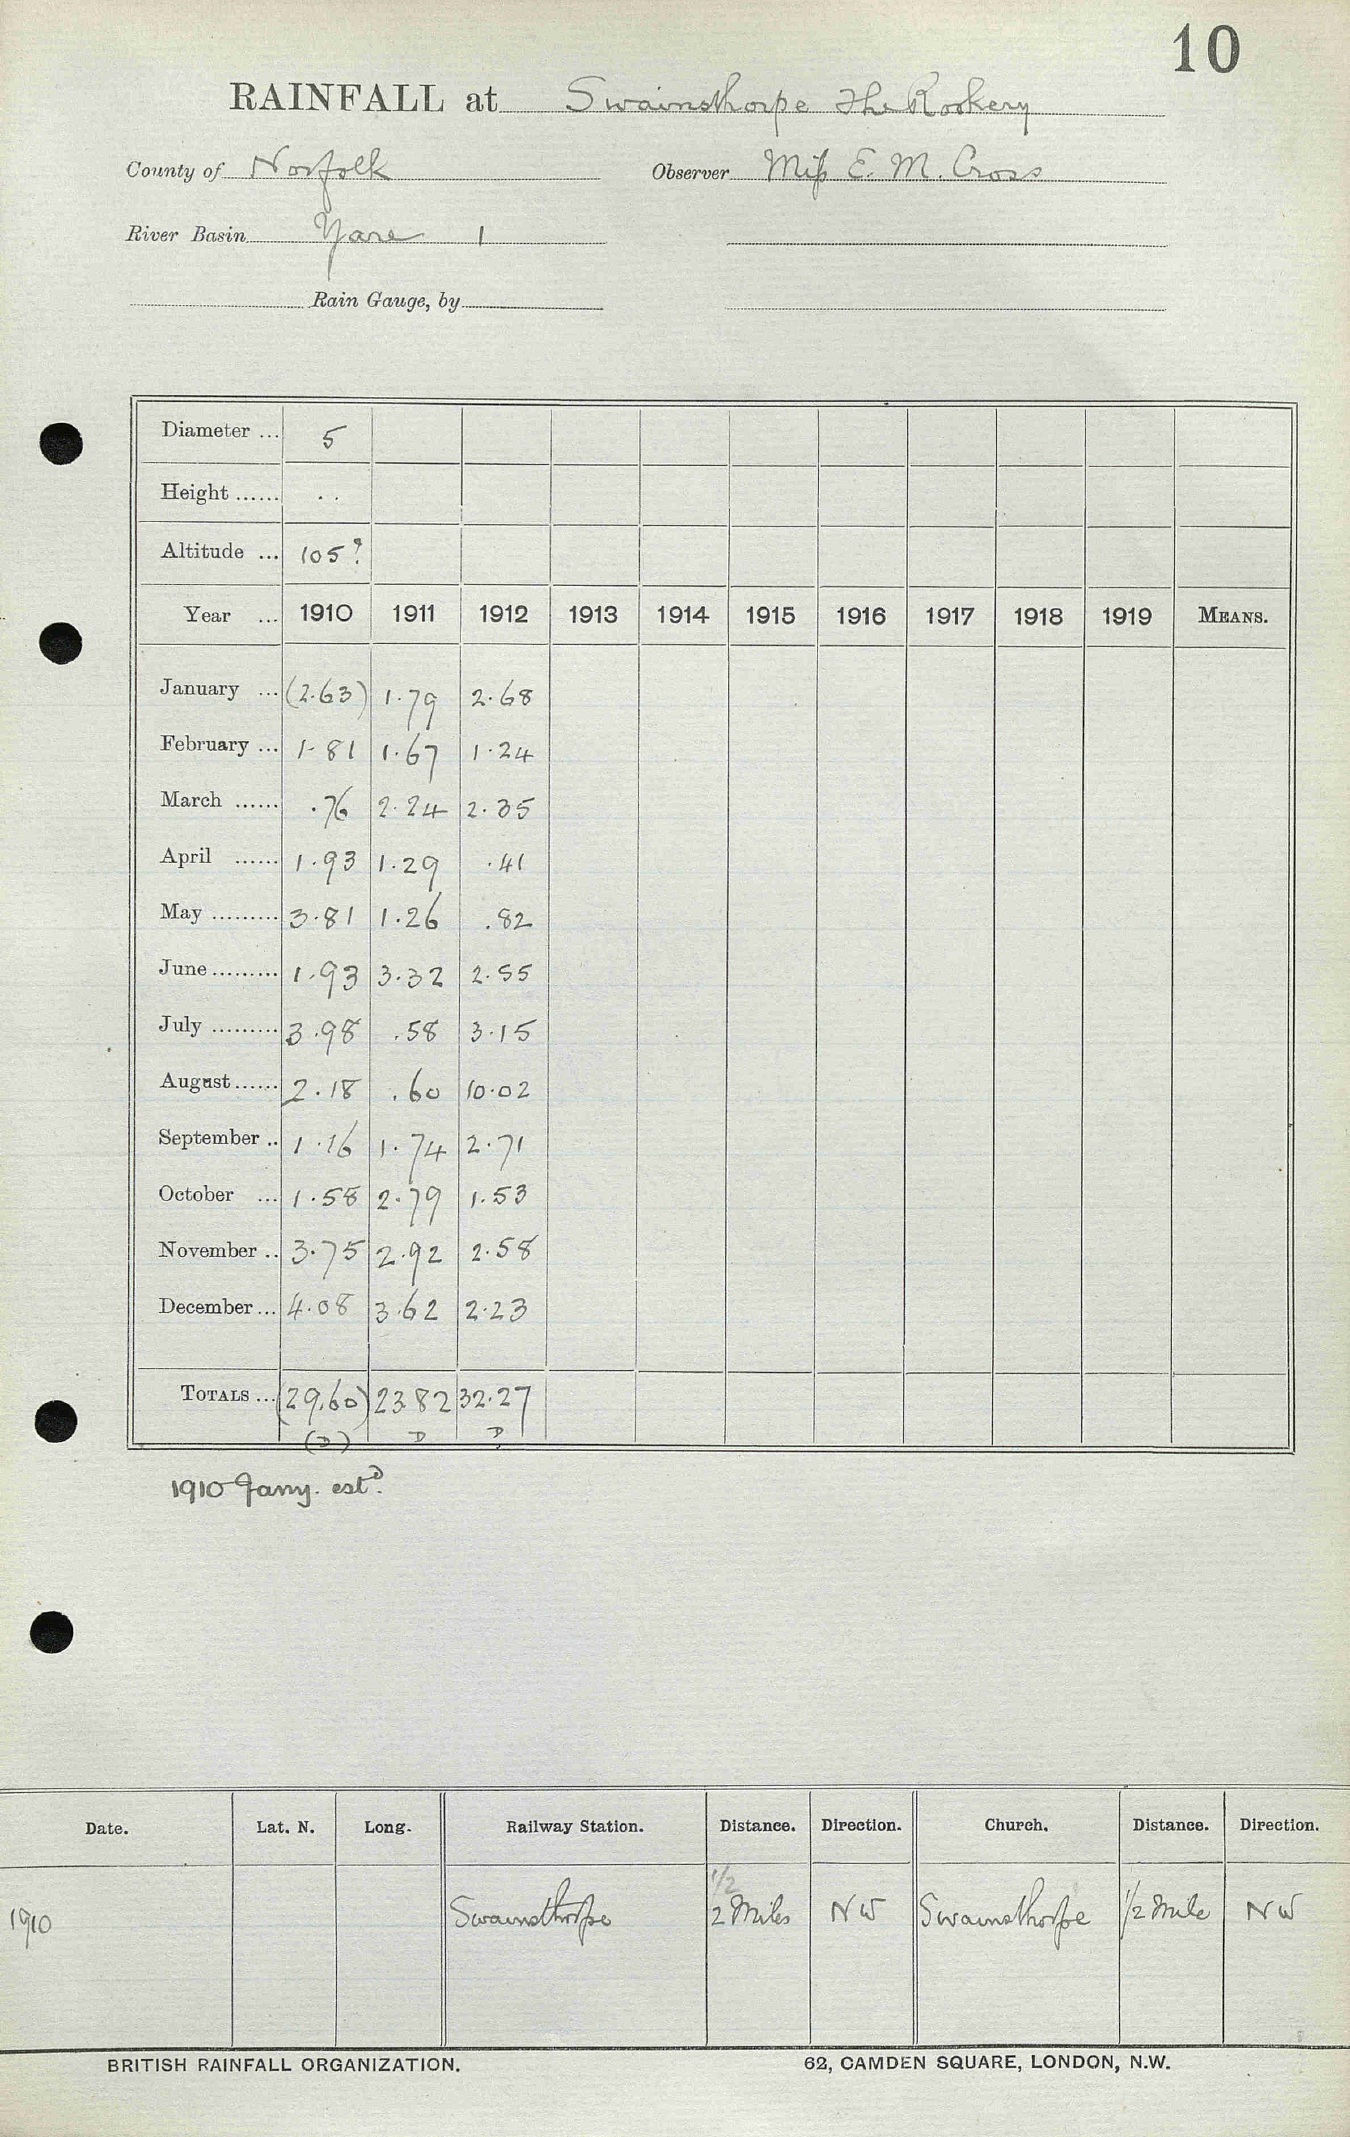 10
RAINFALL at Swainsthorpe The Rookery
County of Norfolk Observer Miss E. M. Cross
River Basin Yare 1
Rain Gauge, by
Diameter ... 5
Height ...... . .
Altitude ... 105?
Year ... 1910 1911 1912 1913 1914 1915 1916 1917 1918 1919 MEANS.
January ... (2.63) 1.79 2.68
February ... 1.81 1.67 1.24
March ...... .76 2.24 2.35
April ...... 1.93 1.29 .41
May ......... 3.81 1.26 .82
June ......... 1.93 3.32 2.55
July ......... 3.98 .58 3.15
August ...... 2.18 .60 10.02
September .. 1.16 1.74 2.71
October ... 1.58 2.79 1.53
November .. 3.75 2.92 2.58
December ... 4.08 3.62 2.23
TOTALS ... (29.60) 23.82 32.27
(D) D D
1910 Jany. estd.
Date. Lat. N. Long. Railway Station. Distance. Direction. Church. Distance. Direction.
1/2
1910 Swainsthorpe 2 Miles NW Swainsthorpe 1/2 Mile NW
BRITISH RAINFALL ORGANIZATION. 62, CAMDEN SQUARE, LONDON, N.W.